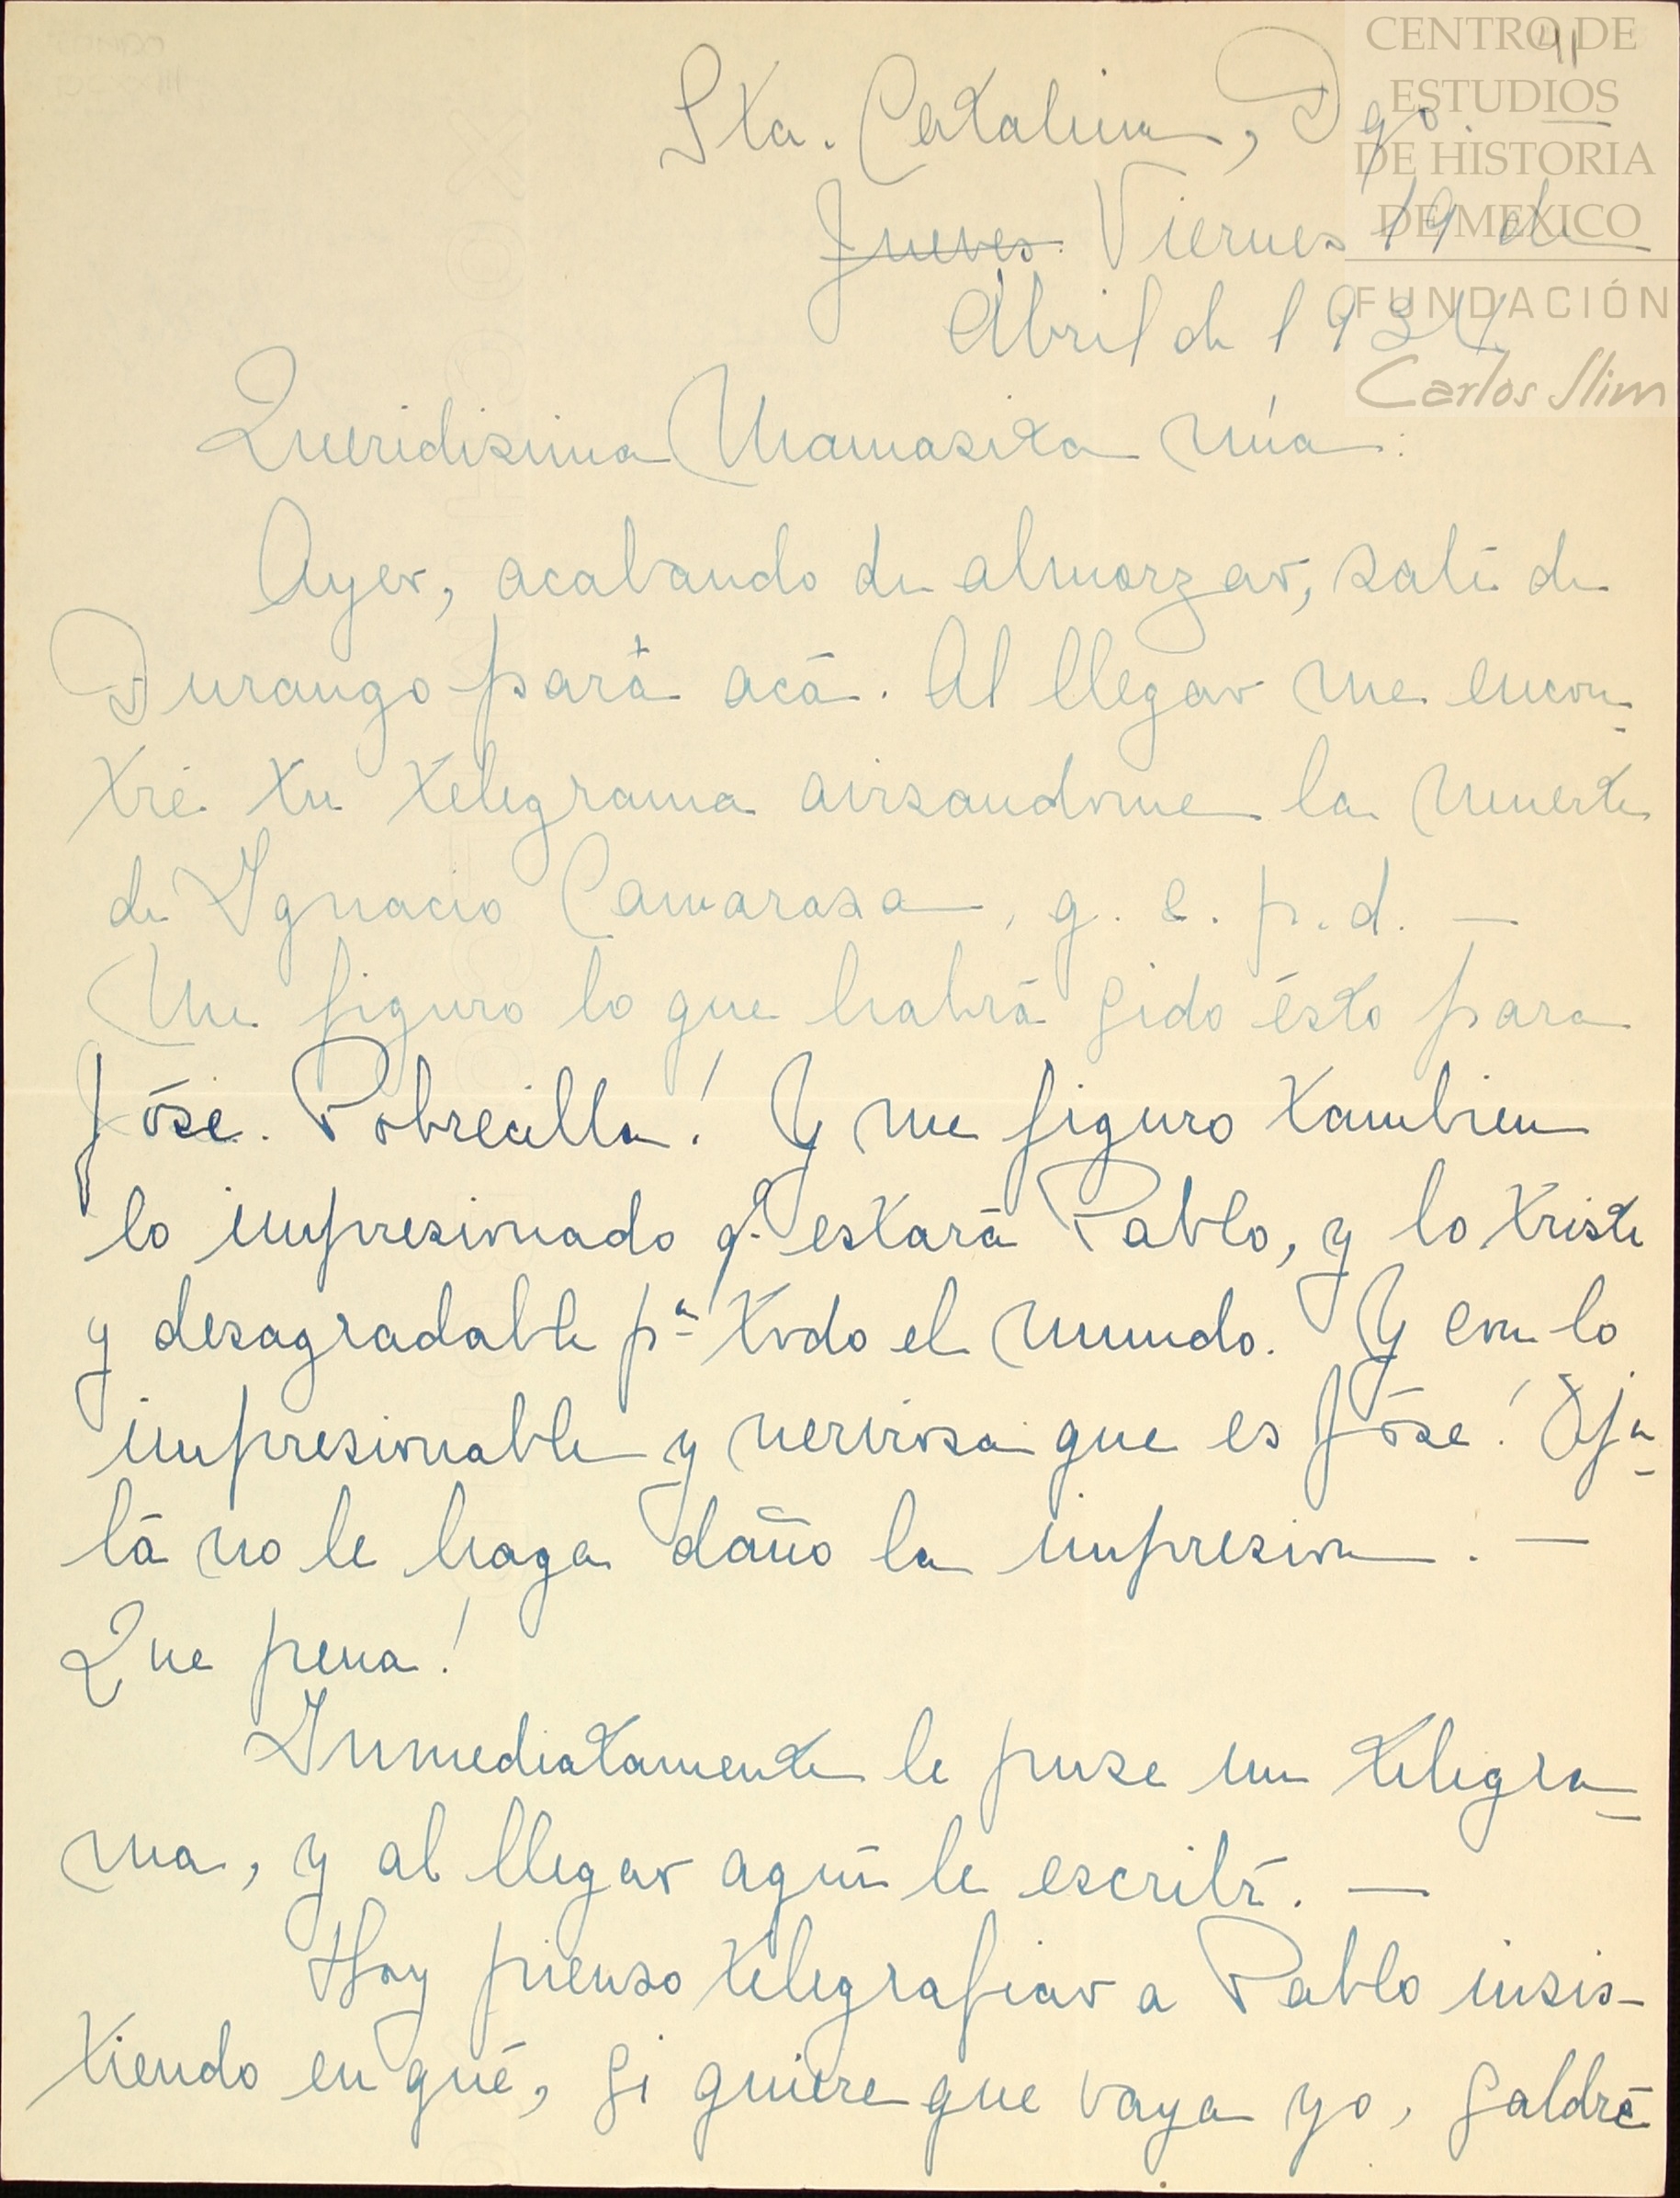 41
CENTRO DE
ESTUDIOS
DE HISTORIA
DE MEXICO
FUNDACIÓN
Carlos Slim
Sta. Catalina, Dgo
Jueves Viernes 19 de
Abril de 1934
Queridisima Mamasita mía:
Ayer, acabando de almorzar, salí de
Durango para acá. Al llegar me encon-
tré tu telegrama avisandome la muerte
de Ignacio Camarasa, q. e. p. d. —
Me figuro lo que habrá sido ésto para
Jóse. Pobrecilla! Y me figuro tambien
lo impresionado q.e estará Pablo, y lo triste
y desagradable p.a todo el mundo. Y con lo
impresionable y nerviosa que es Jóse! Oja-
lá no le haga daño la impresion. —
Que pena!
Inmediatamente le puse un telegra-
ma, y al llegar aquí le escribí. —
Hoy pienso telegrafiar a Pablo insis-
tiendo en qué, si quiere que vaya yo, saldré